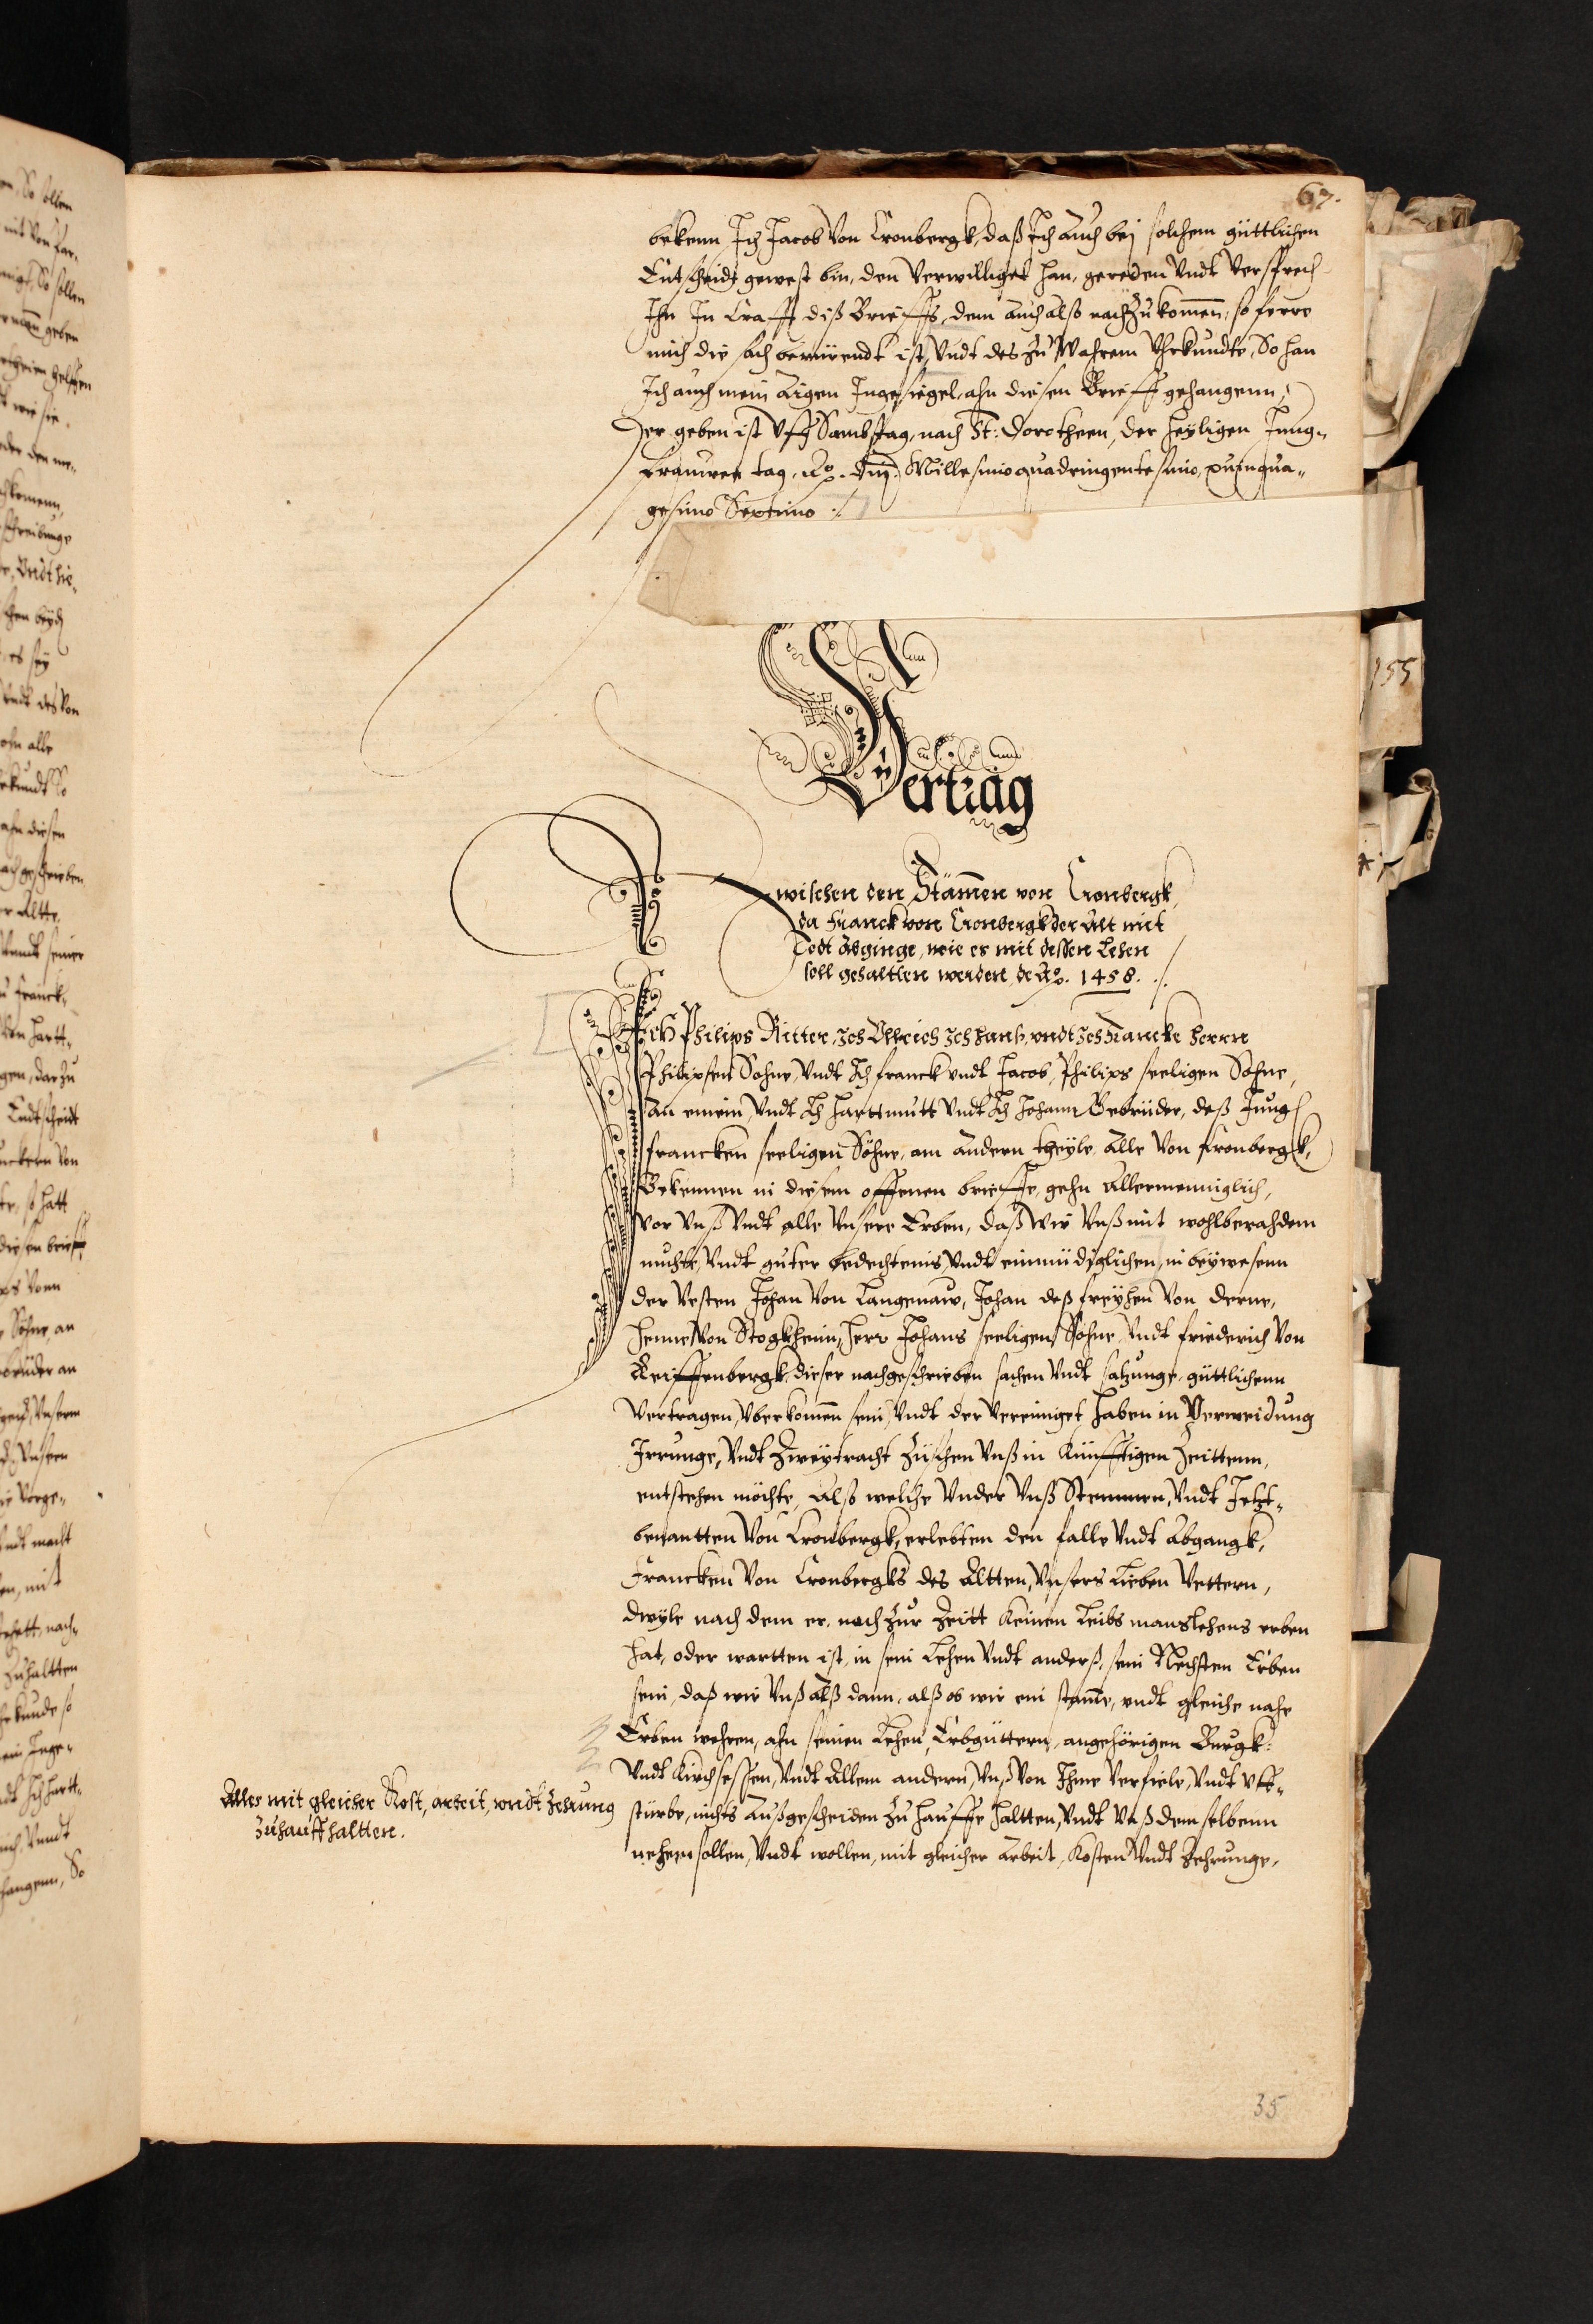 67.
bekenn Ich Jacob Von Cronbergk, daß Ich Auch bej solchem güttlichen
Entscheidt gewest bin, den Verwilliget han, gereden Vndt Versprech
Ihn In Crafft diß Brieffs, dem auch alß nach Zu kom̄en, so ferre
mich die sach berürendt ist, Vndt des Zu Wahrem Vhrkundte, So han
Ich auch mein Aigen Ingesiegel, ahn diesen Brieff gehangenn,
Der geben ist Vff Sambstag, nach St: Dorotheen, der Heyligen Jung„
frauwen tag, Ao. Dnj. Millesimo quadringentesimo, quinqua„
gesimo Septimo ./.
155
Vertrag
Zwischen den Stäm̄en von Cronbergk,
da Franck von Cronbergk der Alt mit
Todt Abginge, wie es mit dessen Lehen
soll gehaltten werden, de Ao. 1458. ./.
Ich Philips Ritter, Ich Ullrich Ich Hanß, vndt Ich Francke Herrn
Philipsen Sohne, Vndt Ich Franck vndt Jacob, Philips seeligen Sohne,
An einem, Vndt Ich Hartmutt Vndt Ich Johann Gebrüder, deß Jung
Francken seeligen Söhne, am andern theyle, Alle Von Kronbergk,
Bekennen in diesem offenen brieffe, gehn Allermenniglich,
Vor Vnß Vndt alle Vnsere Erben, daß Wir Vnß mit wohlberahdem
muhte, Vndt guter bedechtenis, Vndt einmüdiglichen, in beywesenn
der Vesten Johan Von Langenaw, Johan deß freyhen Von Derne,
Henne Von Stogkheim, Herr Johans seeligen Sohne, Vndt Friederich Von
Reiffenbergk, dieser nachgeschrieben sachen Vndt satzunge, güttlichenn
Vertragen, Vberkom̄en sein, Vndt der Vereiniget haben in Vermeidung
Irrunge, Vndt Zweytracht Züschen Vnß in Künfftigen Zeittenn,
entstehen möchte, Alß welche Vnder Vnß Stemmen, Vndt Jetzt„
benantten Von Cronbergk, erlebten den falle Vndt Abgangk,
Francken Von Cronbergks des Altten, Vnsers Lieben Vettern,
dwyle nach dem er, noch Zur Zeitt Keinen Leibs manslehens erben
hat, oder wartten ist, in sein Lehen Vndt anderß, sein Nechsten Erben
sein, daß wir Vnß Alß dann, alß ob wir ein stam̄e, vndt gleiche nahe
Erben wehren, ahn seinen Lehen, Erbgüttern, angehörigen Burgk:
Vndt Kirchsessen, Vndt Allem andern, Vnß Von Ihme Verfiele, Vndt Vff„
stürbe, nichts Außgescheiden Zu hauffe haltten, Vndt Vnß demselbenn
nehern sollen, Vndt wollen, mit gleicher Arbeit, Kosten Vndt Zehrunge,
Alles mit gleicher Kost, arbeit, vndt Zehrung
Zuhauff haltten.
35